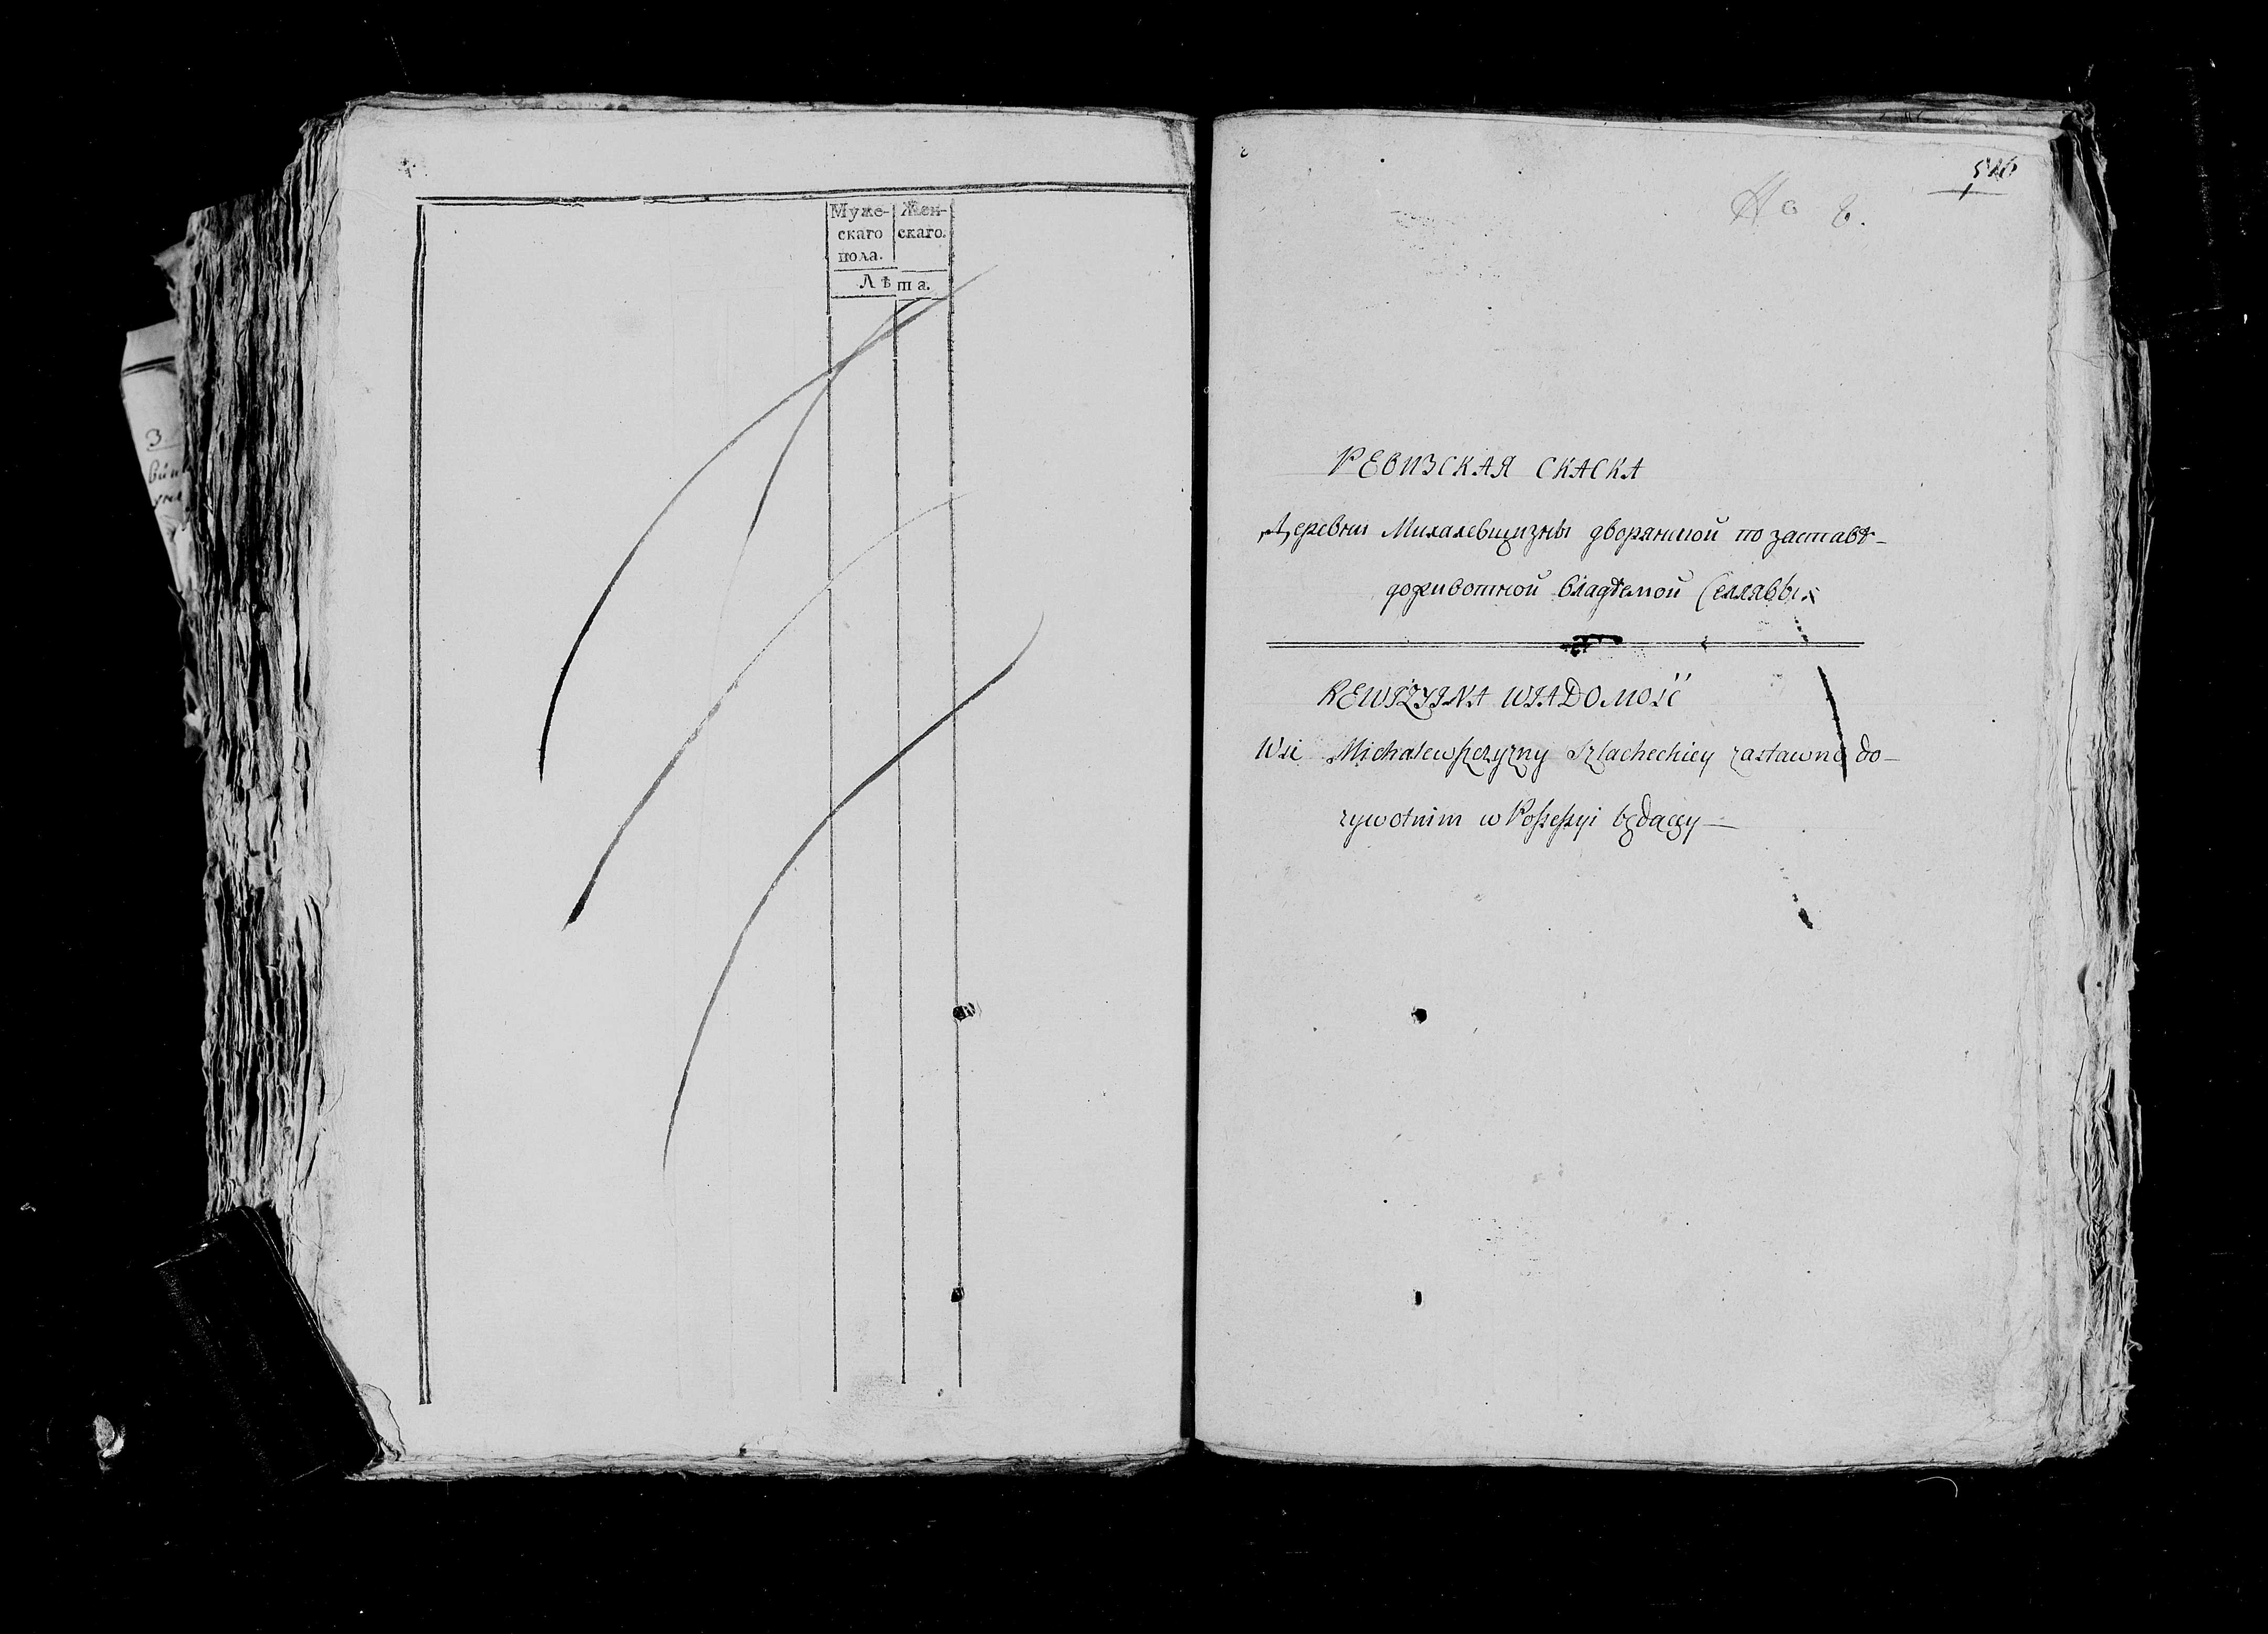 Муже-
скаго
пола.
Жен-
скаго.
Лѣта.
3
РЕВИЗСКАЯ СКАСКА
Деревни Михалевщизны дворянской по заставѣ-
доживотной владѣемой Селлявы
REWIZYJNA WIADOMOŚĆ
Wsi Michalewszczyzny Szlacheckiey zastawno do-
zywotnim w Possessyi będącey—